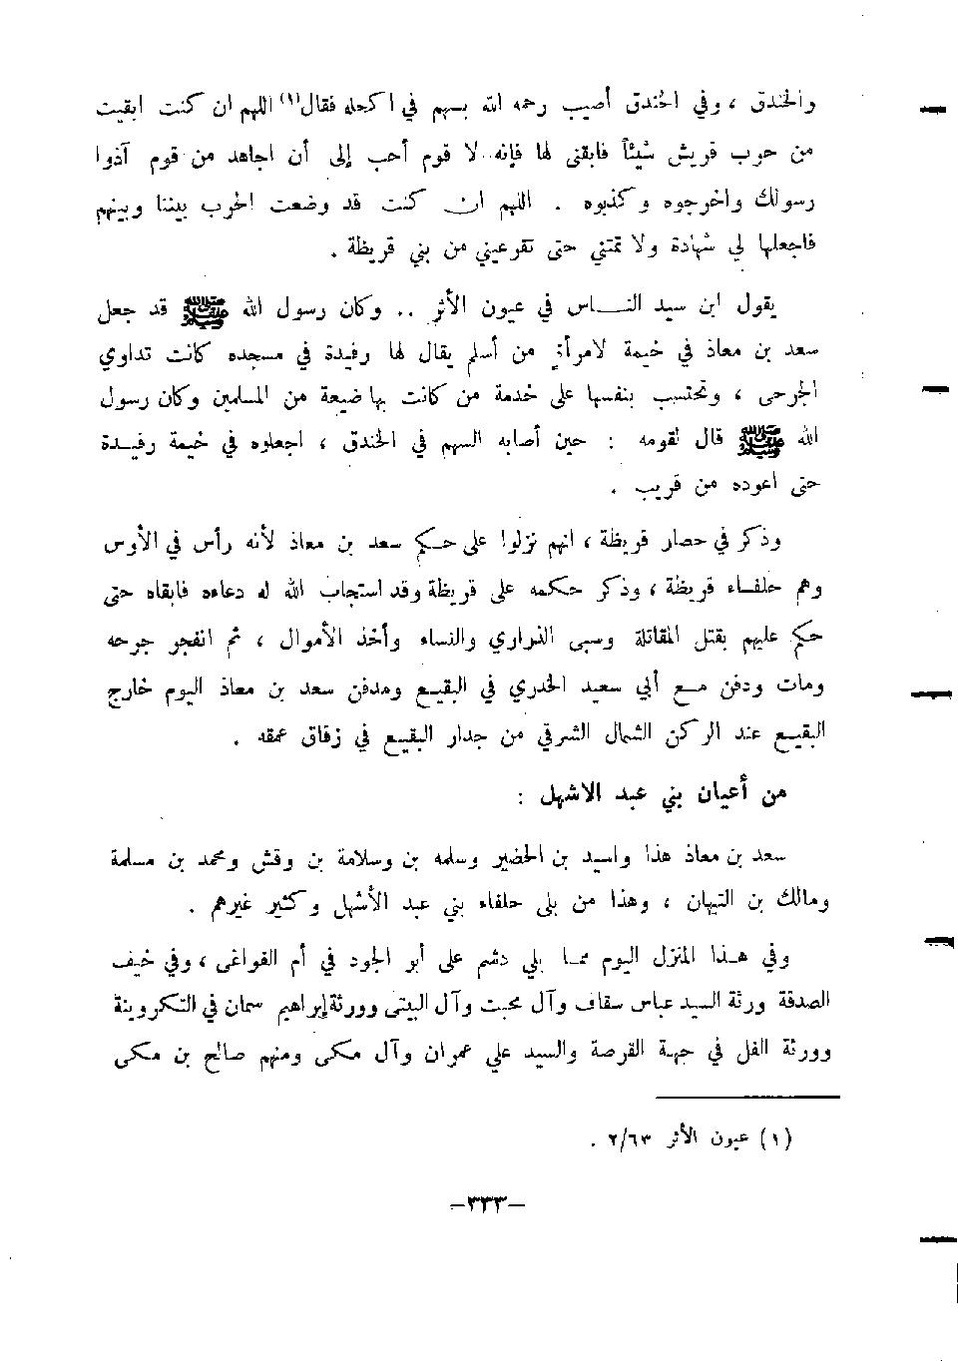 والخندق ، وفي الخندق أصيب رحمه الله بسهم في اكحله فقال(١) اللهم ان كنت ابقيت
من حرب قريش شيئاً فابقني لها فإنه لا قوم أحب إلى أن اجاهد من قوم آذوا
رسولك واخرجوه وكذبوه . اللهم ان كنت قد وضعت الحرب بيننا وبينهم
فاجعلها لي شهادة ولا تمتني حتى تقرعيني من بني قريظة .
يقول ابن سيد النـاس في عيون الأثر .. وكان رسول الله ﷺ قد جعل
سعد بن معاذ في خيمة لامرأة من أسلم يقال لها رفيدة في مسجده كانت تداوي
الجرحى ، وتحتسب بنفسها على خدمة من كانت بها ضيعة من المسلمين وكان رسول
الله ﷺ قال لقومه : حين أصابه السهم في الخندق ، اجعلوه في خيمة رفيـدة
حتى اعوده من قريب .
وذكر في حصار قريظة ، انهم نزلوا على حكـم سعد بن معاذ لأنه رأس في الأوس
وهم حلفـاء قريظة ، وذكر حكمه على قريظة وقد استجاب الله له دعاءه فابقاه حتى
حكم عليهم بقتل المقاتلة وسبى الذراري والنساء وأخذ الأموال ، ثم انفجر جرحه
ومات ودفن مـع أبي سعيد الخدري في البقيـع ومدفن سعد بن معاذ اليوم خارج
البقيـع عند الركن الشمال الشرقي من جدار البقيـع في زقاق عمقه .
من أعيان بني عبد الاشهل :
سعد بن معاذ هذا واسيد بن الحضير وسلمه بن وسلامة بن وقش ومحمد بن مسلمة
ومالك بن التيهان ، وهذا من بلى حلفاء بني عبد الأشهل وكثير غيرهم .
وفي هـذا المنزل اليوم ممـا يلي دشم على أبو الجود في أم الفواغى ، وفي خيف
الصدقة ورثة السيد عباس سقاف وآل محبت وآل البيتى وورثة إبراهيم سمان في التكروينة
وورثة الفل في جهة القرصة والسيد علي عمران وآل مكى ومنهم صالح بن مكى
(١) عيون الأثر ٢/٦٣ .
–٣٣٣–